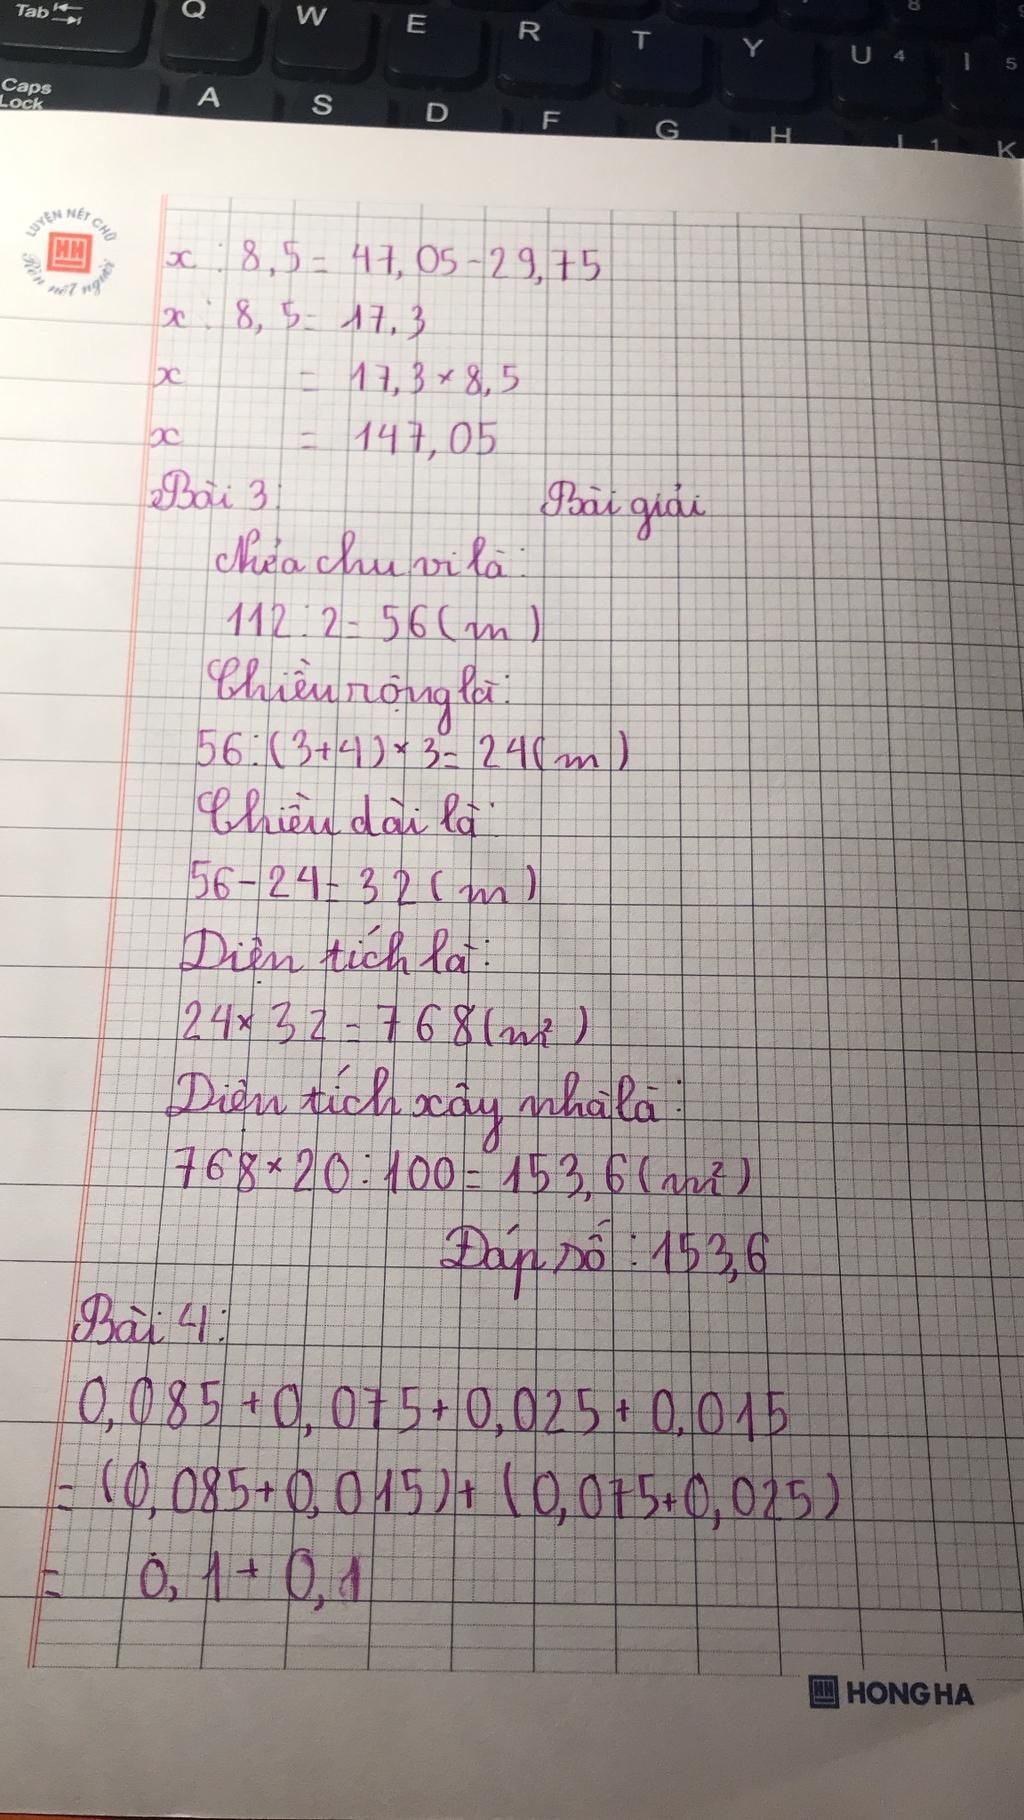 Tab Q W E R T Y U 4 I 5
8
Caps Lock A S D F G H J 1 K
LUYỆN NÉT CHỮ
HH
Rèn nết người
x : 8,5 = 47,05 - 29,75
x : 8,5 = 17,3
x = 17,3 × 8,5
x = 147,05
Bài 3: Bài giải
Nửa chu vi là:
112 : 2 = 56 (m)
Chiều rộng là:
56 : (3+4) × 3 = 24 (m)
Chiều dài là:
56 - 24 = 32 (m)
Diện tích là:
24 × 32 = 768 (m²)
Diện tích xây nhà là:
768 × 20 : 100 = 153,6 (m²)
Đáp số : 153,6
Bài 4:
0,085 + 0,075 + 0,025 + 0,015
= (0,085 + 0,015) + (0,075 + 0,025)
= 0,1 + 0,1
HH HONG HA